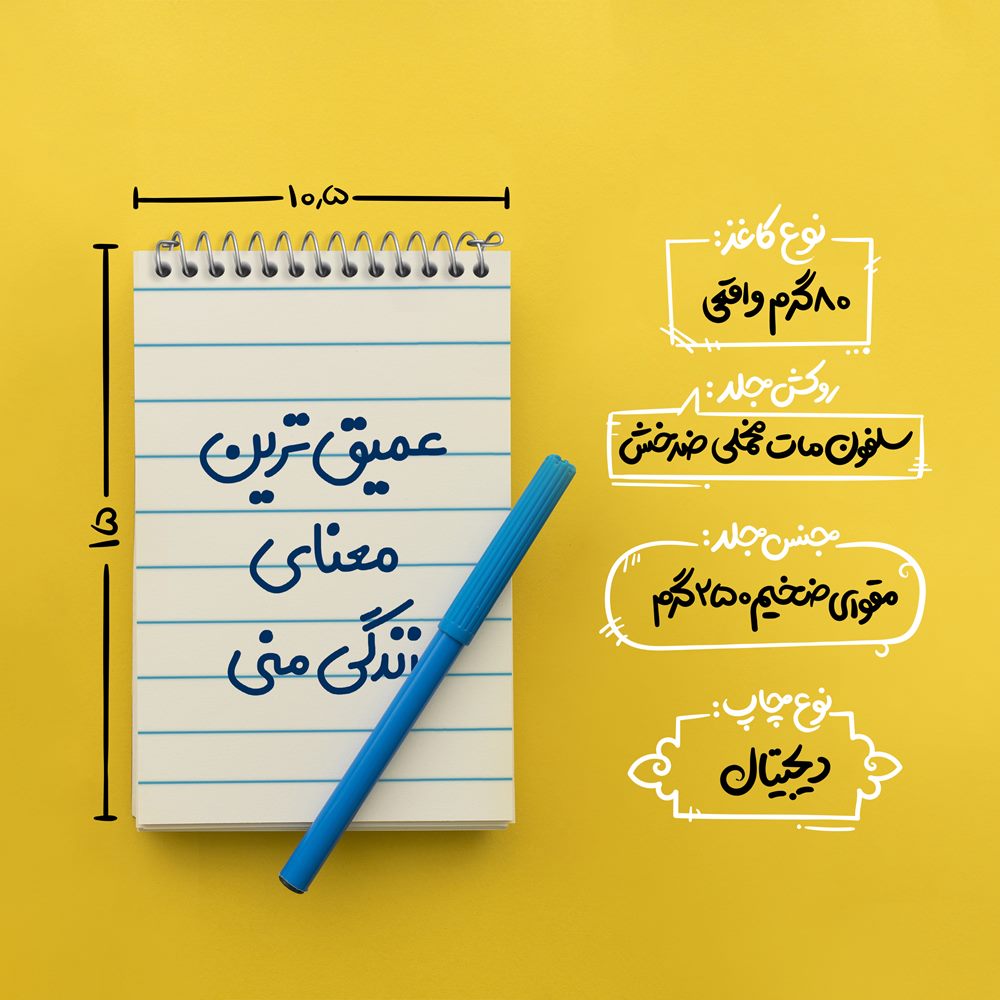 ۱۰٫۵
۱۵
عمیق ترین
معنای
زندگی منی
نوع کاغذ:
۸۰گرم واقعی
روکش جلد:
سلفون مات مخملی ضدخش
جنس جلد:
مقوای ضخیم ۲۵۰گرم
نوع چاپ:
دیجیتال